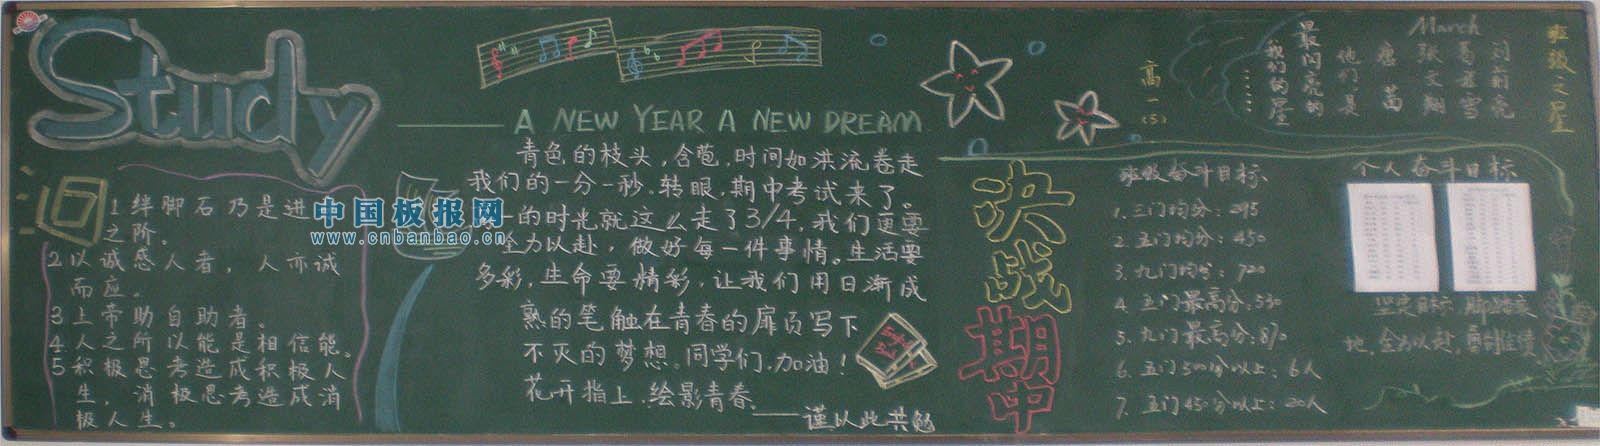 Study
1 绊脚石乃是进
之阶。
2 以诚感人者，人亦诚
而应。
3 上帝助自助者。
4 人之所以能是相信能。
5 积极思考造成积极人
生，消极思考造成消
极人生。
中国板报网
www.cnbanbao.cn
A NEW YEAR A NEW DREAM
青色的枝头，含苞，时间如洪流卷走
我们的一分一秒。转眼，期中考试来了。
一的时光就这么走了3/4，我们更要
全力以赴，做好每一件事情。生活要
多彩，生命要精彩，让我们用日渐成
熟的笔触在青春的扉页写下
不灭的梦想。同学们，加油！
花开指上，绘影青春。
——谨以此共勉
决战
期中
高一
(5)
班级之星
March
最闪亮的
他们是
我们的星
……
班级奋斗目标
1. 三门均分：295
2. 五门均分：450
3. 九门均分：720
4. 五门最高分：530
5. 九门最高分：810
6. 五门500分以上：6人
7. 五门450分以上：20人
个人奋斗目标
坚定目标，脚踏实
地，全力以赴，